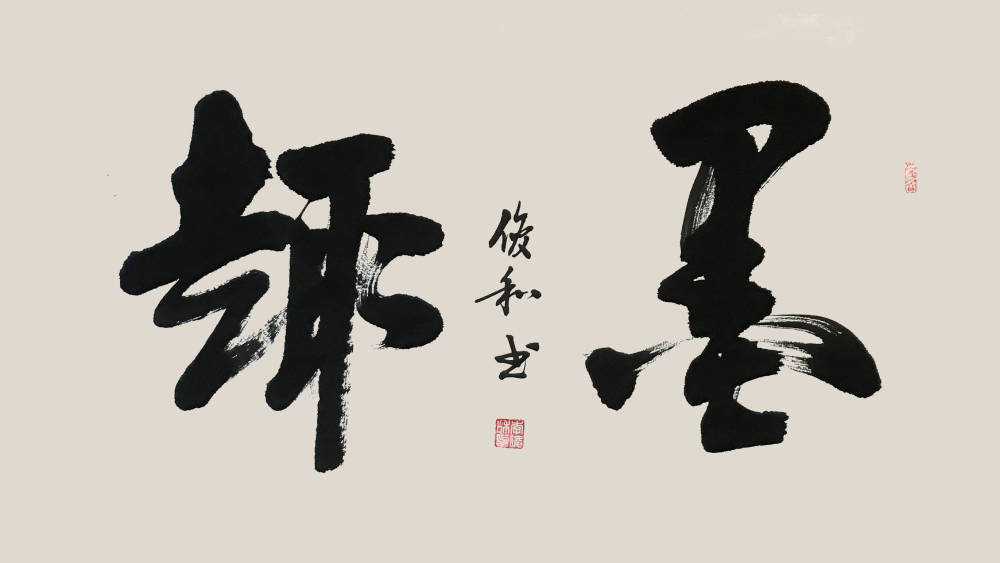 墨趣
俊和书